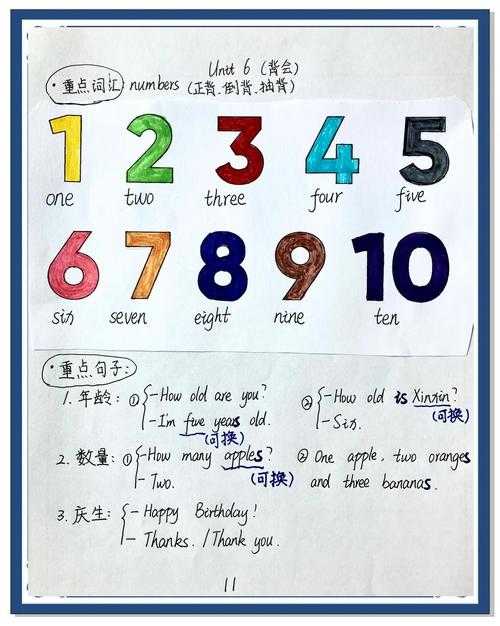 Unit 6 (背会)
·重点词汇 numbers (正背、倒背、抽背)
1 2 3 4 5
one two three four five
6 7 8 9 10
six seven eight nine ten
·重点句子:
1. 年龄: ① -How old are you? ② -How old is Xinxin?
-I'm five years old. -Six. (可换)
(可换)
2. 数量: ① -How many apples? ② One apple, two oranges
- Two. (可换) and three bananas.
3. 庆生: - Happy Birthday!
- Thanks. / Thank you.
11